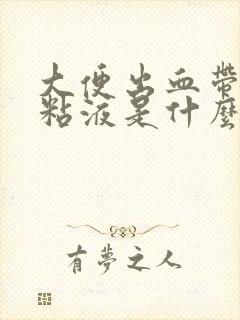 大便出血帶
粘液是什麼
有夢之人